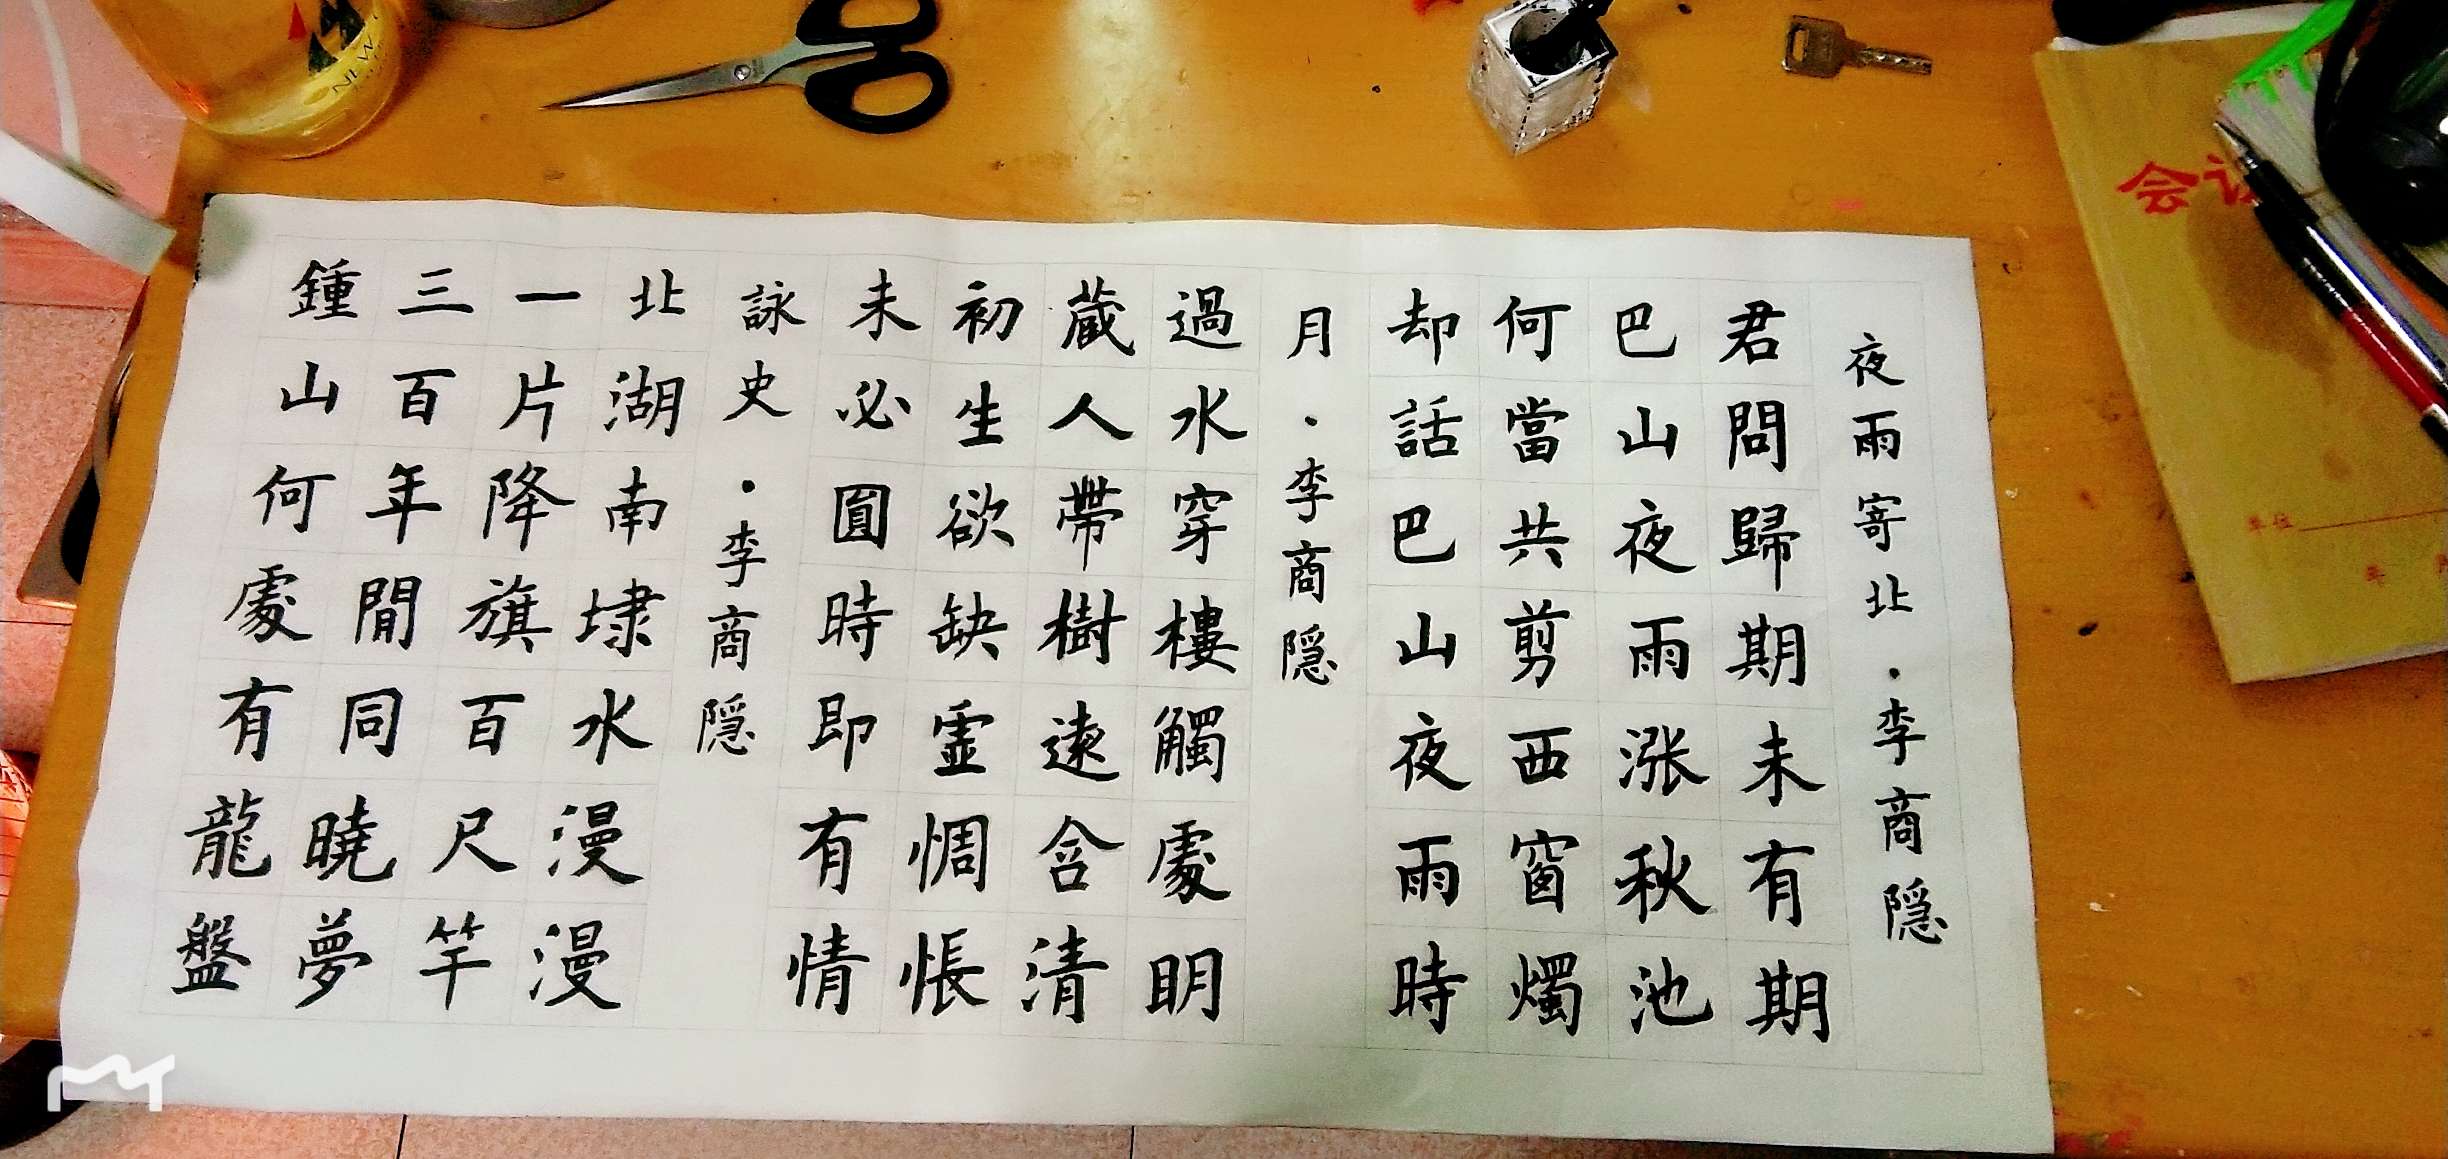 夜雨寄北·李商隐
君問歸期未有期
巴山夜雨漲秋池
何當共剪西窗燭
却話巴山夜雨時
月·李商隐
過水穿樓觸處明
蔵人帶樹遠含清
初生欲缺霊惆悵
未必圓時即有情
詠史·李商隐
北湖南埭水漫漫
一片降旗百尺竿
三百年間同曉夢
鍾山何處有龍盤
会议
单位